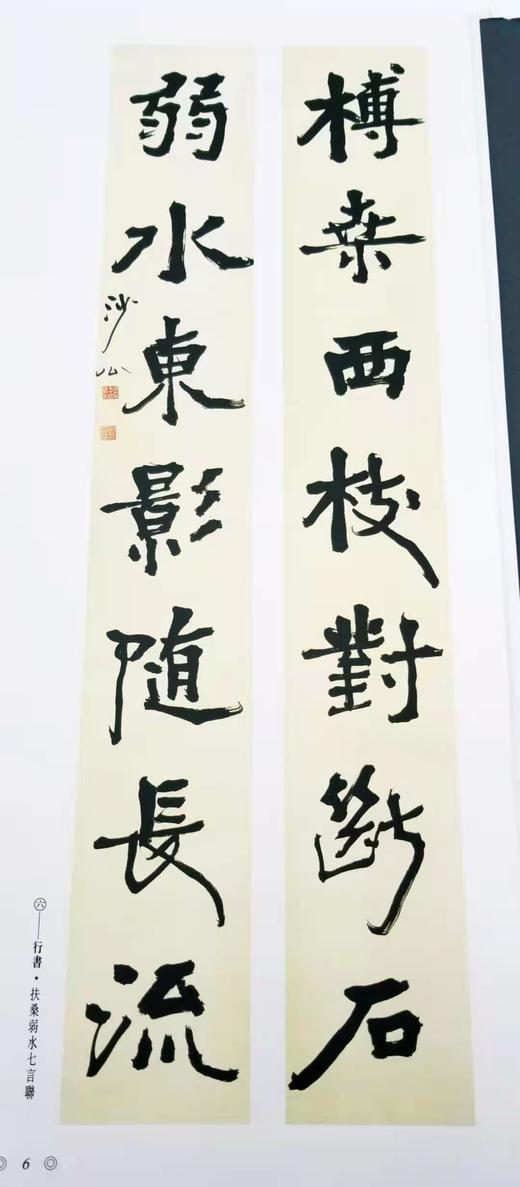 榑桒西枝對斷石
弱水東影随長流
沙公
㊅——行書·扶桑弱水七言聯
6